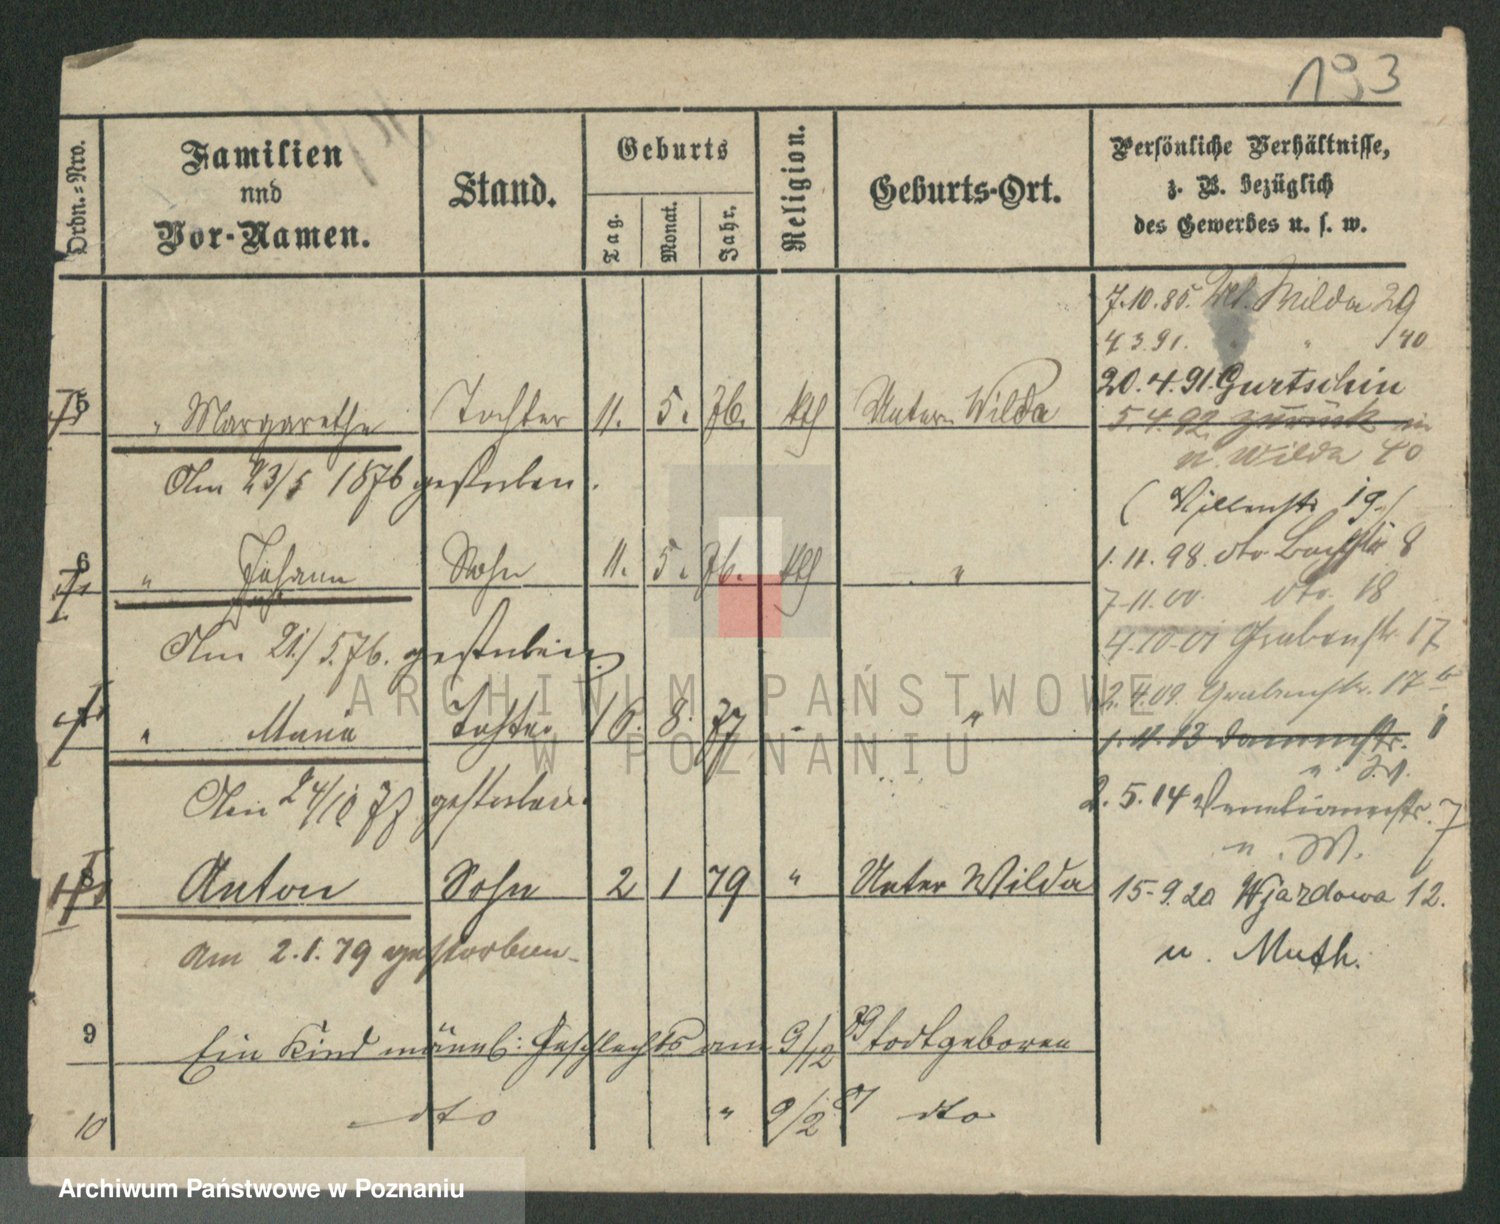 193
Ordn.-Nro.
Familien
nnd
Vor-Namen.
Stand.
Geburts
Tag.
Monat.
Jahr.
Religion.
Geburts-Ort.
Persönliche Verhältnisse,
z. B. bezüglich
des Gewerbes u. s. w.
7.10.85. Wilda 29
4.3.91. " " 40
20.4.91. Gurtschin
5.4.92. zurück in
u. Wilda 40
5 " Margarethe Tochter 11. 5. 76. kth Unter Wilda
Am 23/5 1876 gestorben.
( Villenstr 19.)
6 " Johann Sohn 11. 5. 76. kth "
1.11.98. dto 8
7.11.00 dto. 18
Am 21./5.76. gestorben.
4.10.01 Grabenstr. 17
2.4.09. Grabenstr. 17
7 " Maria Tochter 16. 8. 77 - "
1.11.13 Dammstr. 1
Am 24/10 77 gestorben.
2.5.14 Venetianerstr. 7
u. W.
8 Anton Sohn 2 1 79 " Unter Wilda
15.9.20 Wjazdowa 12.
am 2.1.79 gestorben
u. Muth.
9 Ein Kind männl: Geschlechts am 9/12 79 todtgeboren
10 dto " 9/2 81 dto
ARCHIWUM PAŃSTWOWE
W POZNANIU
Archiwum Państwowe w Poznaniu